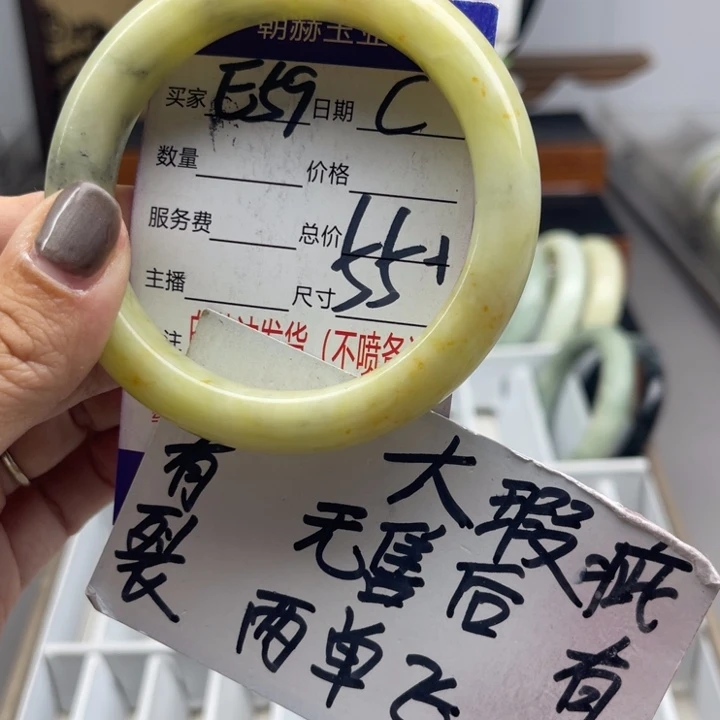 朝赫玉业
买家 E59 日期 C
数量 价格
服务费 总价 55+
主播 尺寸 55
注
发货（不喷备
有裂
大瑕疵
无售后
有
两单飞